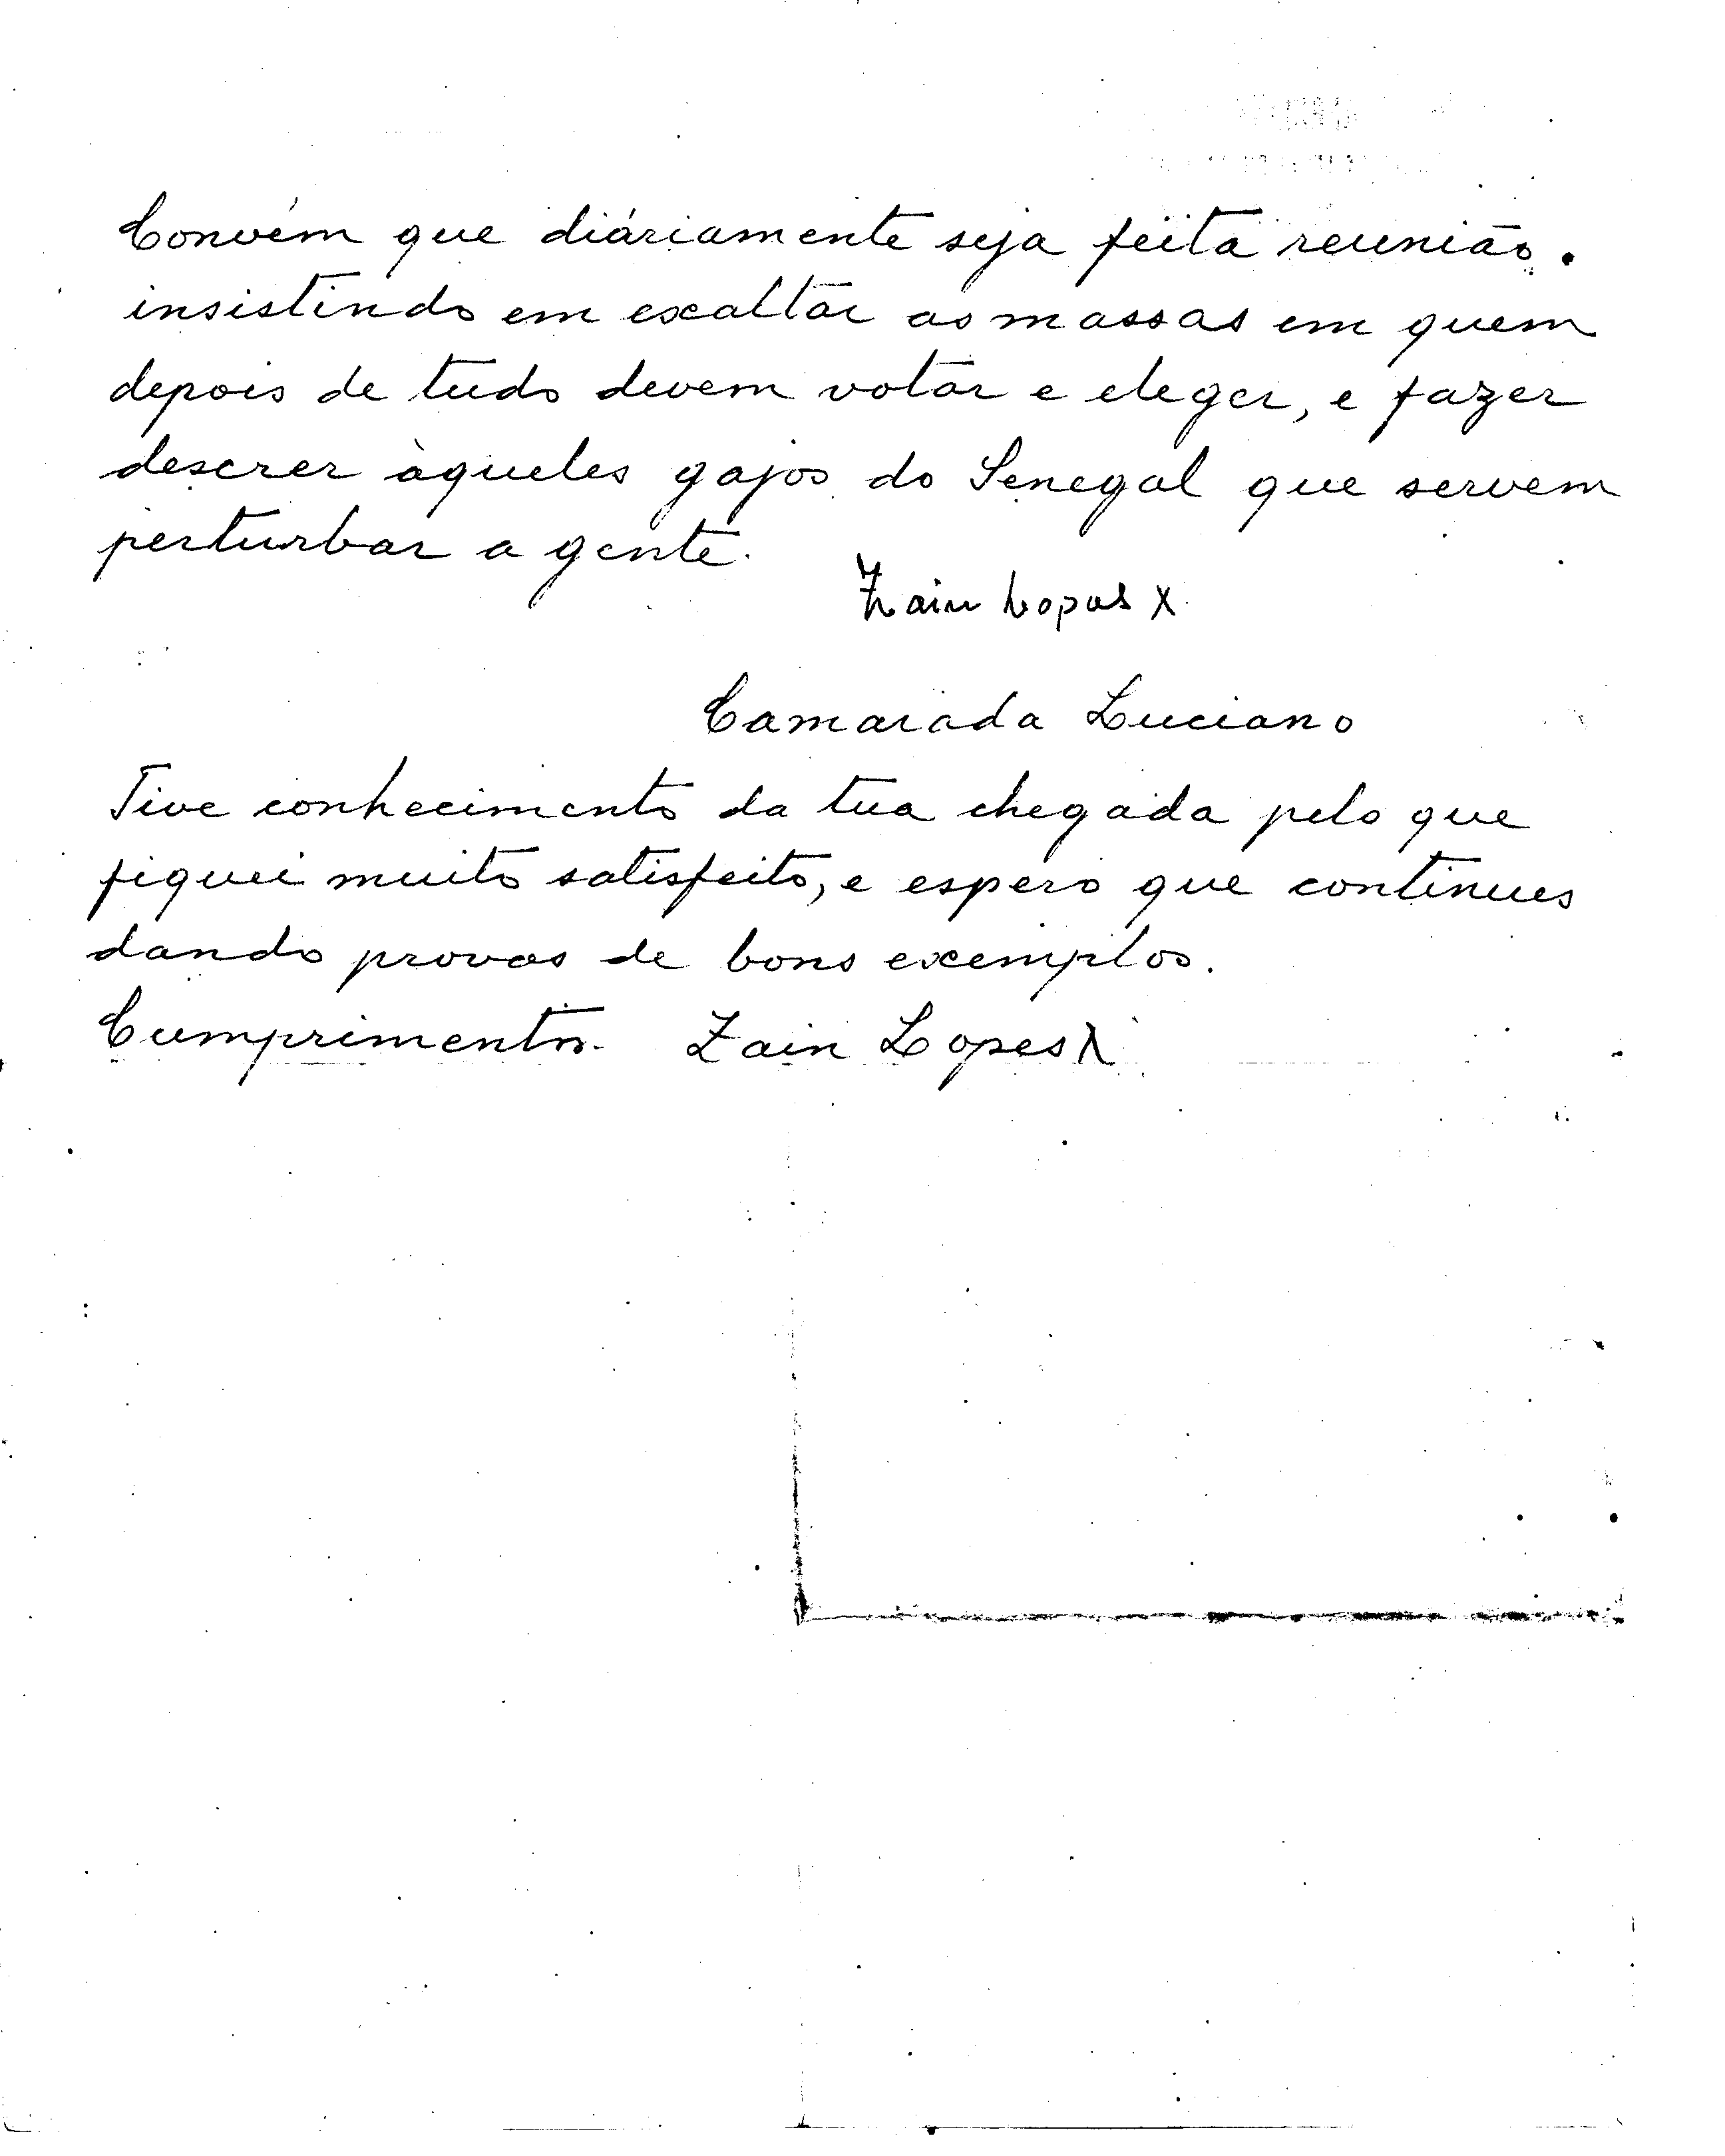 Convém que diáriamente seja feita reunião.
insistindo em exaltar as massas em quem
depois de tudo devem votar e eleger, e fazer
descrer àqueles gajos do Senegal que servem
perturbar a gente.
Zain Lopes X
Camarada Luciano
Tive conhecimento da tua chegada pelo que
fiquei muito satisfeito, e espero que continues
dando provas de bons exemplos.
Cumprimentos. Zain Lopes X